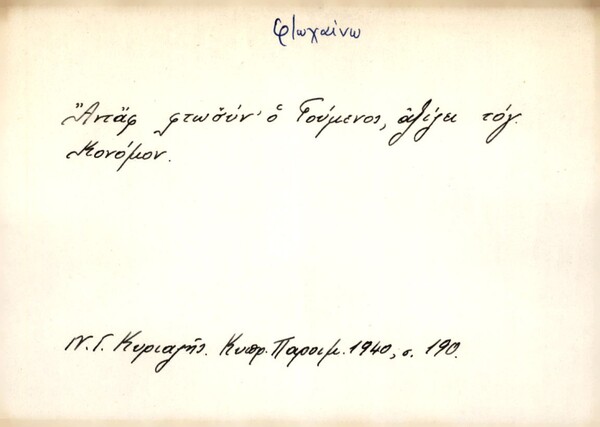 φτωχαίνω
Ἀντὰφ φτωχύν' ὁ Γούμενος, ἀλίζει τόγ
Κονόμον.
Ν. Γ. Κυριαζῆς. Κυπρ. Παροιμ. 1940, σ. 190.